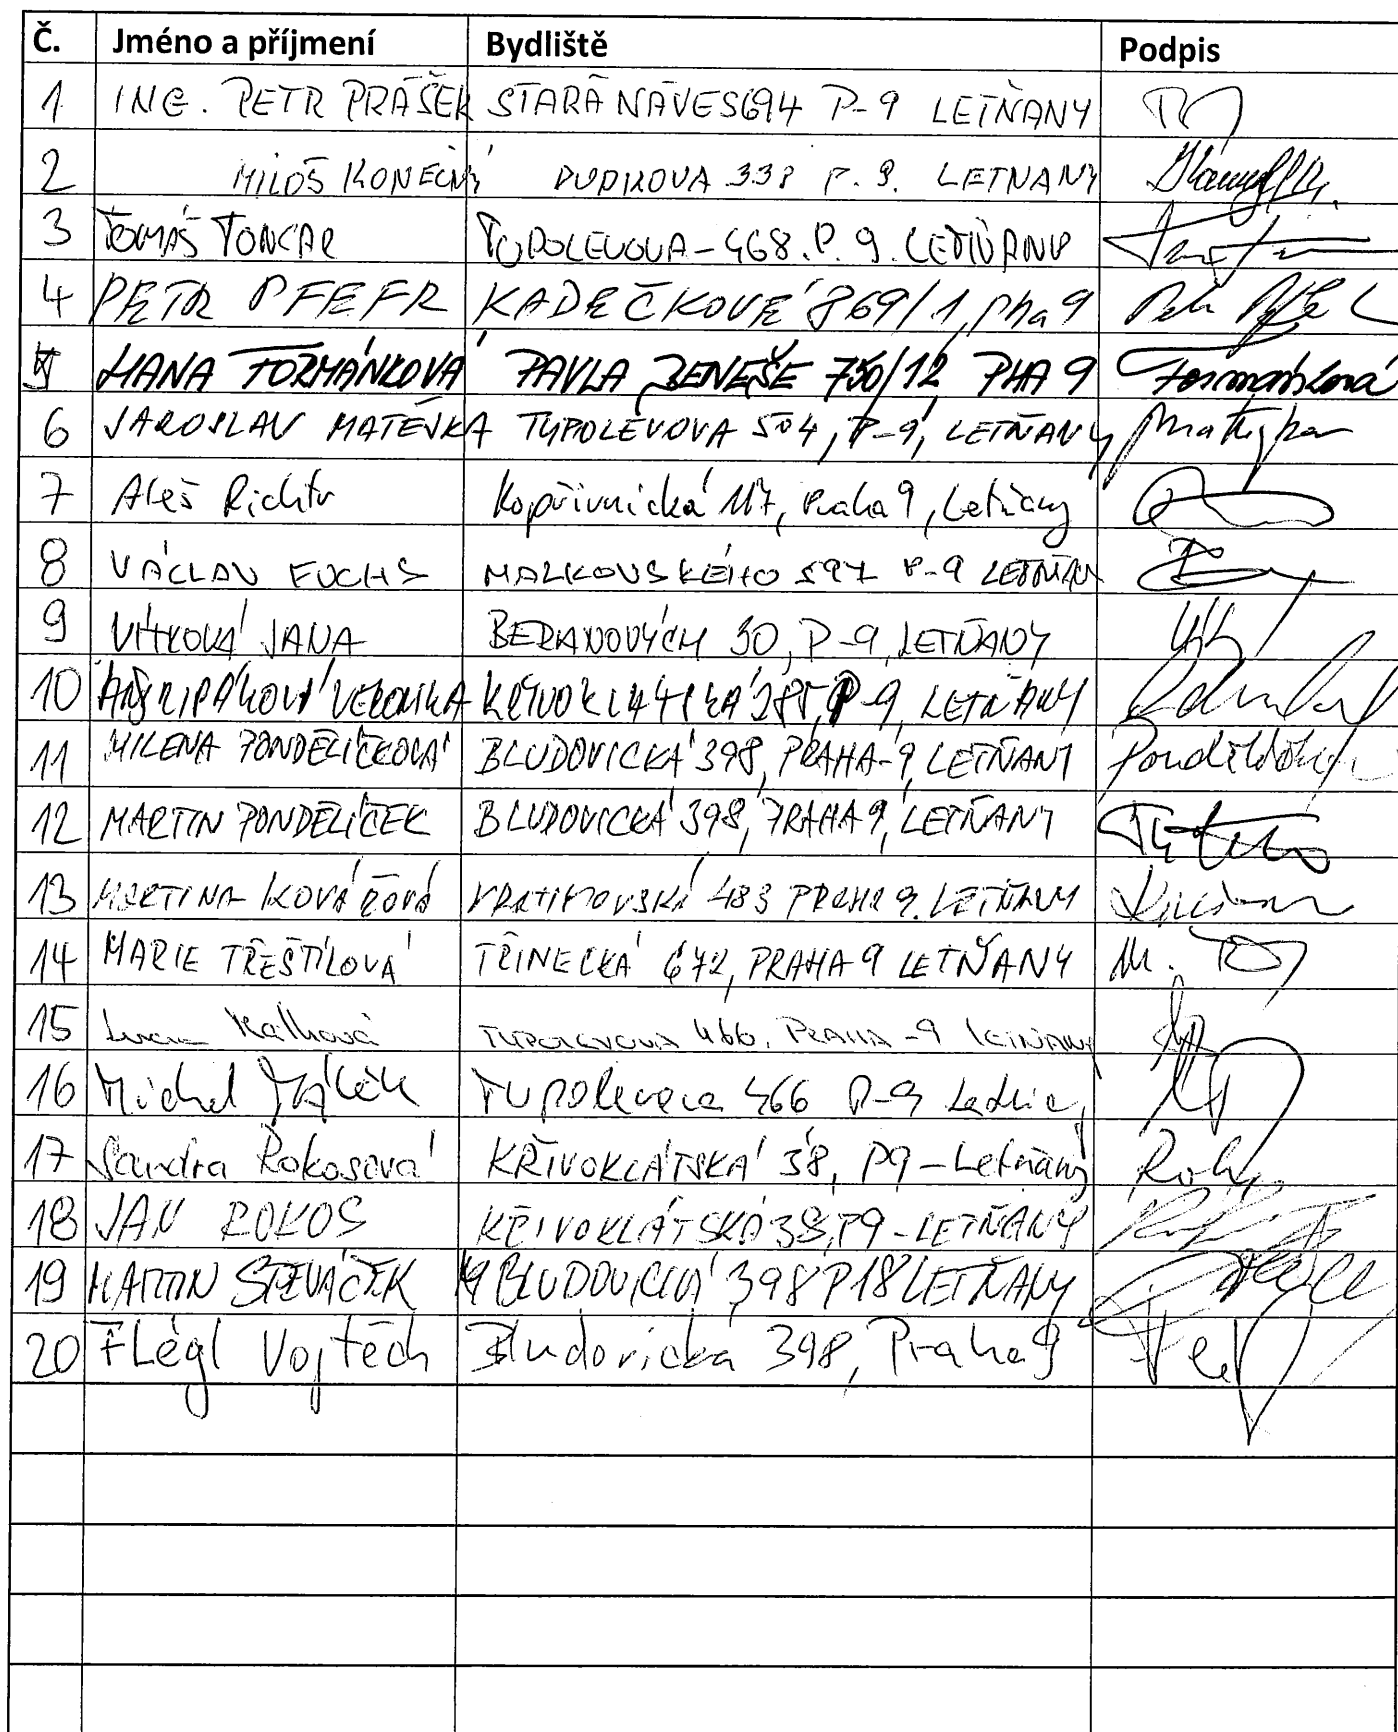 Č. Jméno a příjmení Bydliště Podpis
1 ING. PETR PRÁŠEK STARÁ NÁVES 694 P-9 LETŇANY
2 MILOŠ KONEČNÝ 338 P. 9. LETNANY
3 TOMÁŠ TONCAR TUPOLEVOVA-468. P. 9. LETŇANY
4 PETR PFEFR KADEČKOVÉ 869/1, Pha 9
5 HANA FORMÁNKOVÁ PAVLA BENEŠE 750/12, PHA 9 Formánková
6 JAROSLAV MATĚJKA TUPOLEVOVA 504, P-9, LETŇANY
7 Aleš Richtr Kopřivnická 117, Praha 9, Letňany
8 VÁCLAV FUCHS MALKOVSKÉHO 597 P-9 LETŇAN
9 VÍTKOVÁ JANA BERANOVÝCH 30, P-9, LETŇANY
10 VERONIKA KŘIVOKLÁTSKÁ 385, P-9, LETŇANY
11 MILENA PONDĚLÍČKOVÁ BLUDOVICKÁ 398, PRAHA-9, LETŇANY
12 MARTIN PONDĚLÍČEK BLUDOVICKÁ 398, PRAHA 9, LETŇANY
13 MARTINA KOVÁŘOVÁ VRATIMOVSKÁ 483 PRAHA 9. LETŇANY
14 MARIE TŘEŠTÍLOVÁ TŘINECKÁ 672, PRAHA 9 LETŇANY M.
15 Kalhová TUPOLEVOVA 466, PRAHA-9 LETŇANY
16 Michal Tupolevova 466 P-9
17 Sandra Rokosová KŘIVOKLÁTSKÁ 38, P9-Letňany
18 JAN ROKOS KŘIVOKLÁTSKÁ 38, P9-LETŇANY
19 MARTIN BLUDOVICKÁ 398 P18 LETŇANY
20 FLégl Vojtěch Bludovická 398, Praha 9